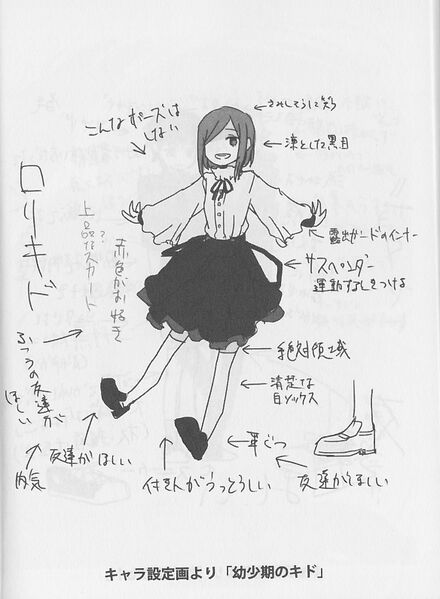 こんなポーズは
しない
うれしそうに笑う
凛とした黒目
露出ガードのインナー
サスペンダー
運動なしをつける
絶対領域
清楚な
白ソックス
革ぐつ
友達がほしい
付き人がうっとうしい
友達がほしい
内気
ふつうの友達が
ほしい
ロリーキド
上品なスカート
?
赤色がお好き
キャラ設定画より「幼少期のキド」